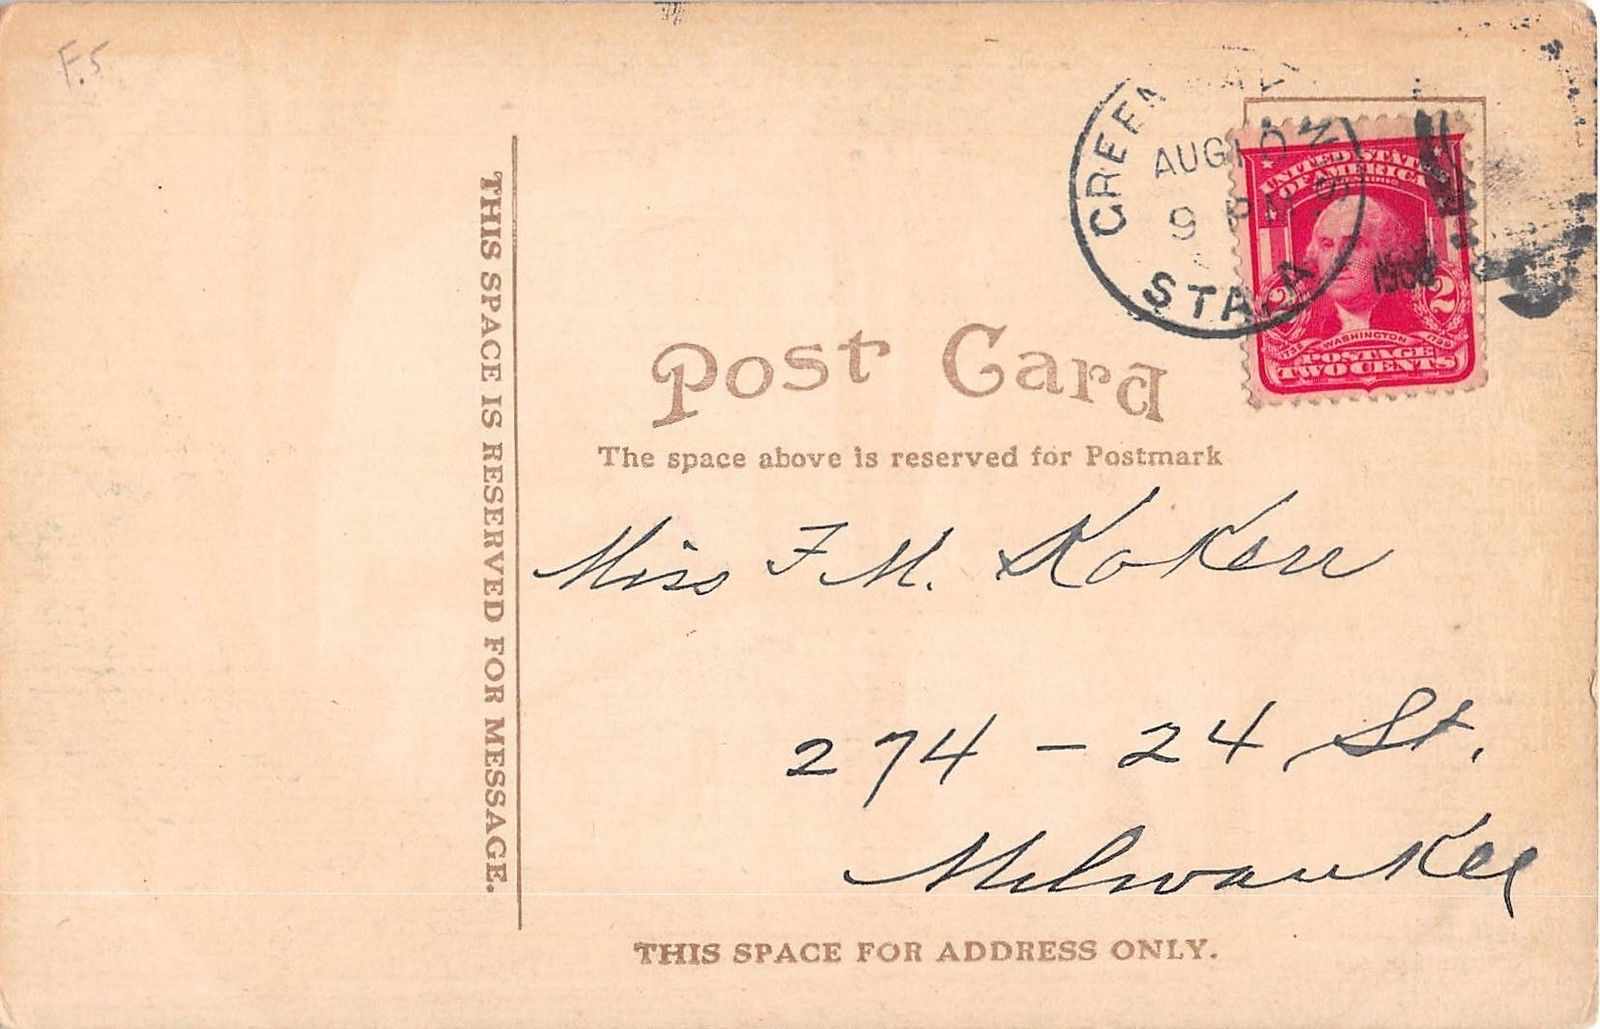 F.5
GREEN BAY WIS
AUG 10
9 P
1908
STA. A
UNITED STATES
OF AMERICA
2 2
1732 WASHINGTON 1799
POSTAGE
TWO CENTS
Post Card
The space above is reserved for Postmark
THIS SPACE IS RESERVED FOR MESSAGE.
Miss F. M. Koken
274 - 24 St.
Milwaukee
THIS SPACE FOR ADDRESS ONLY.